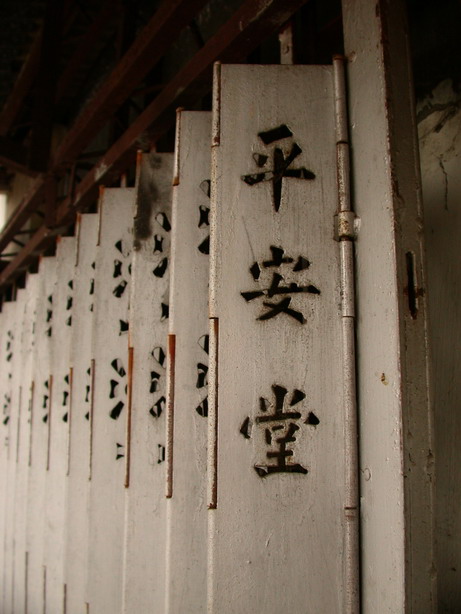 平安堂